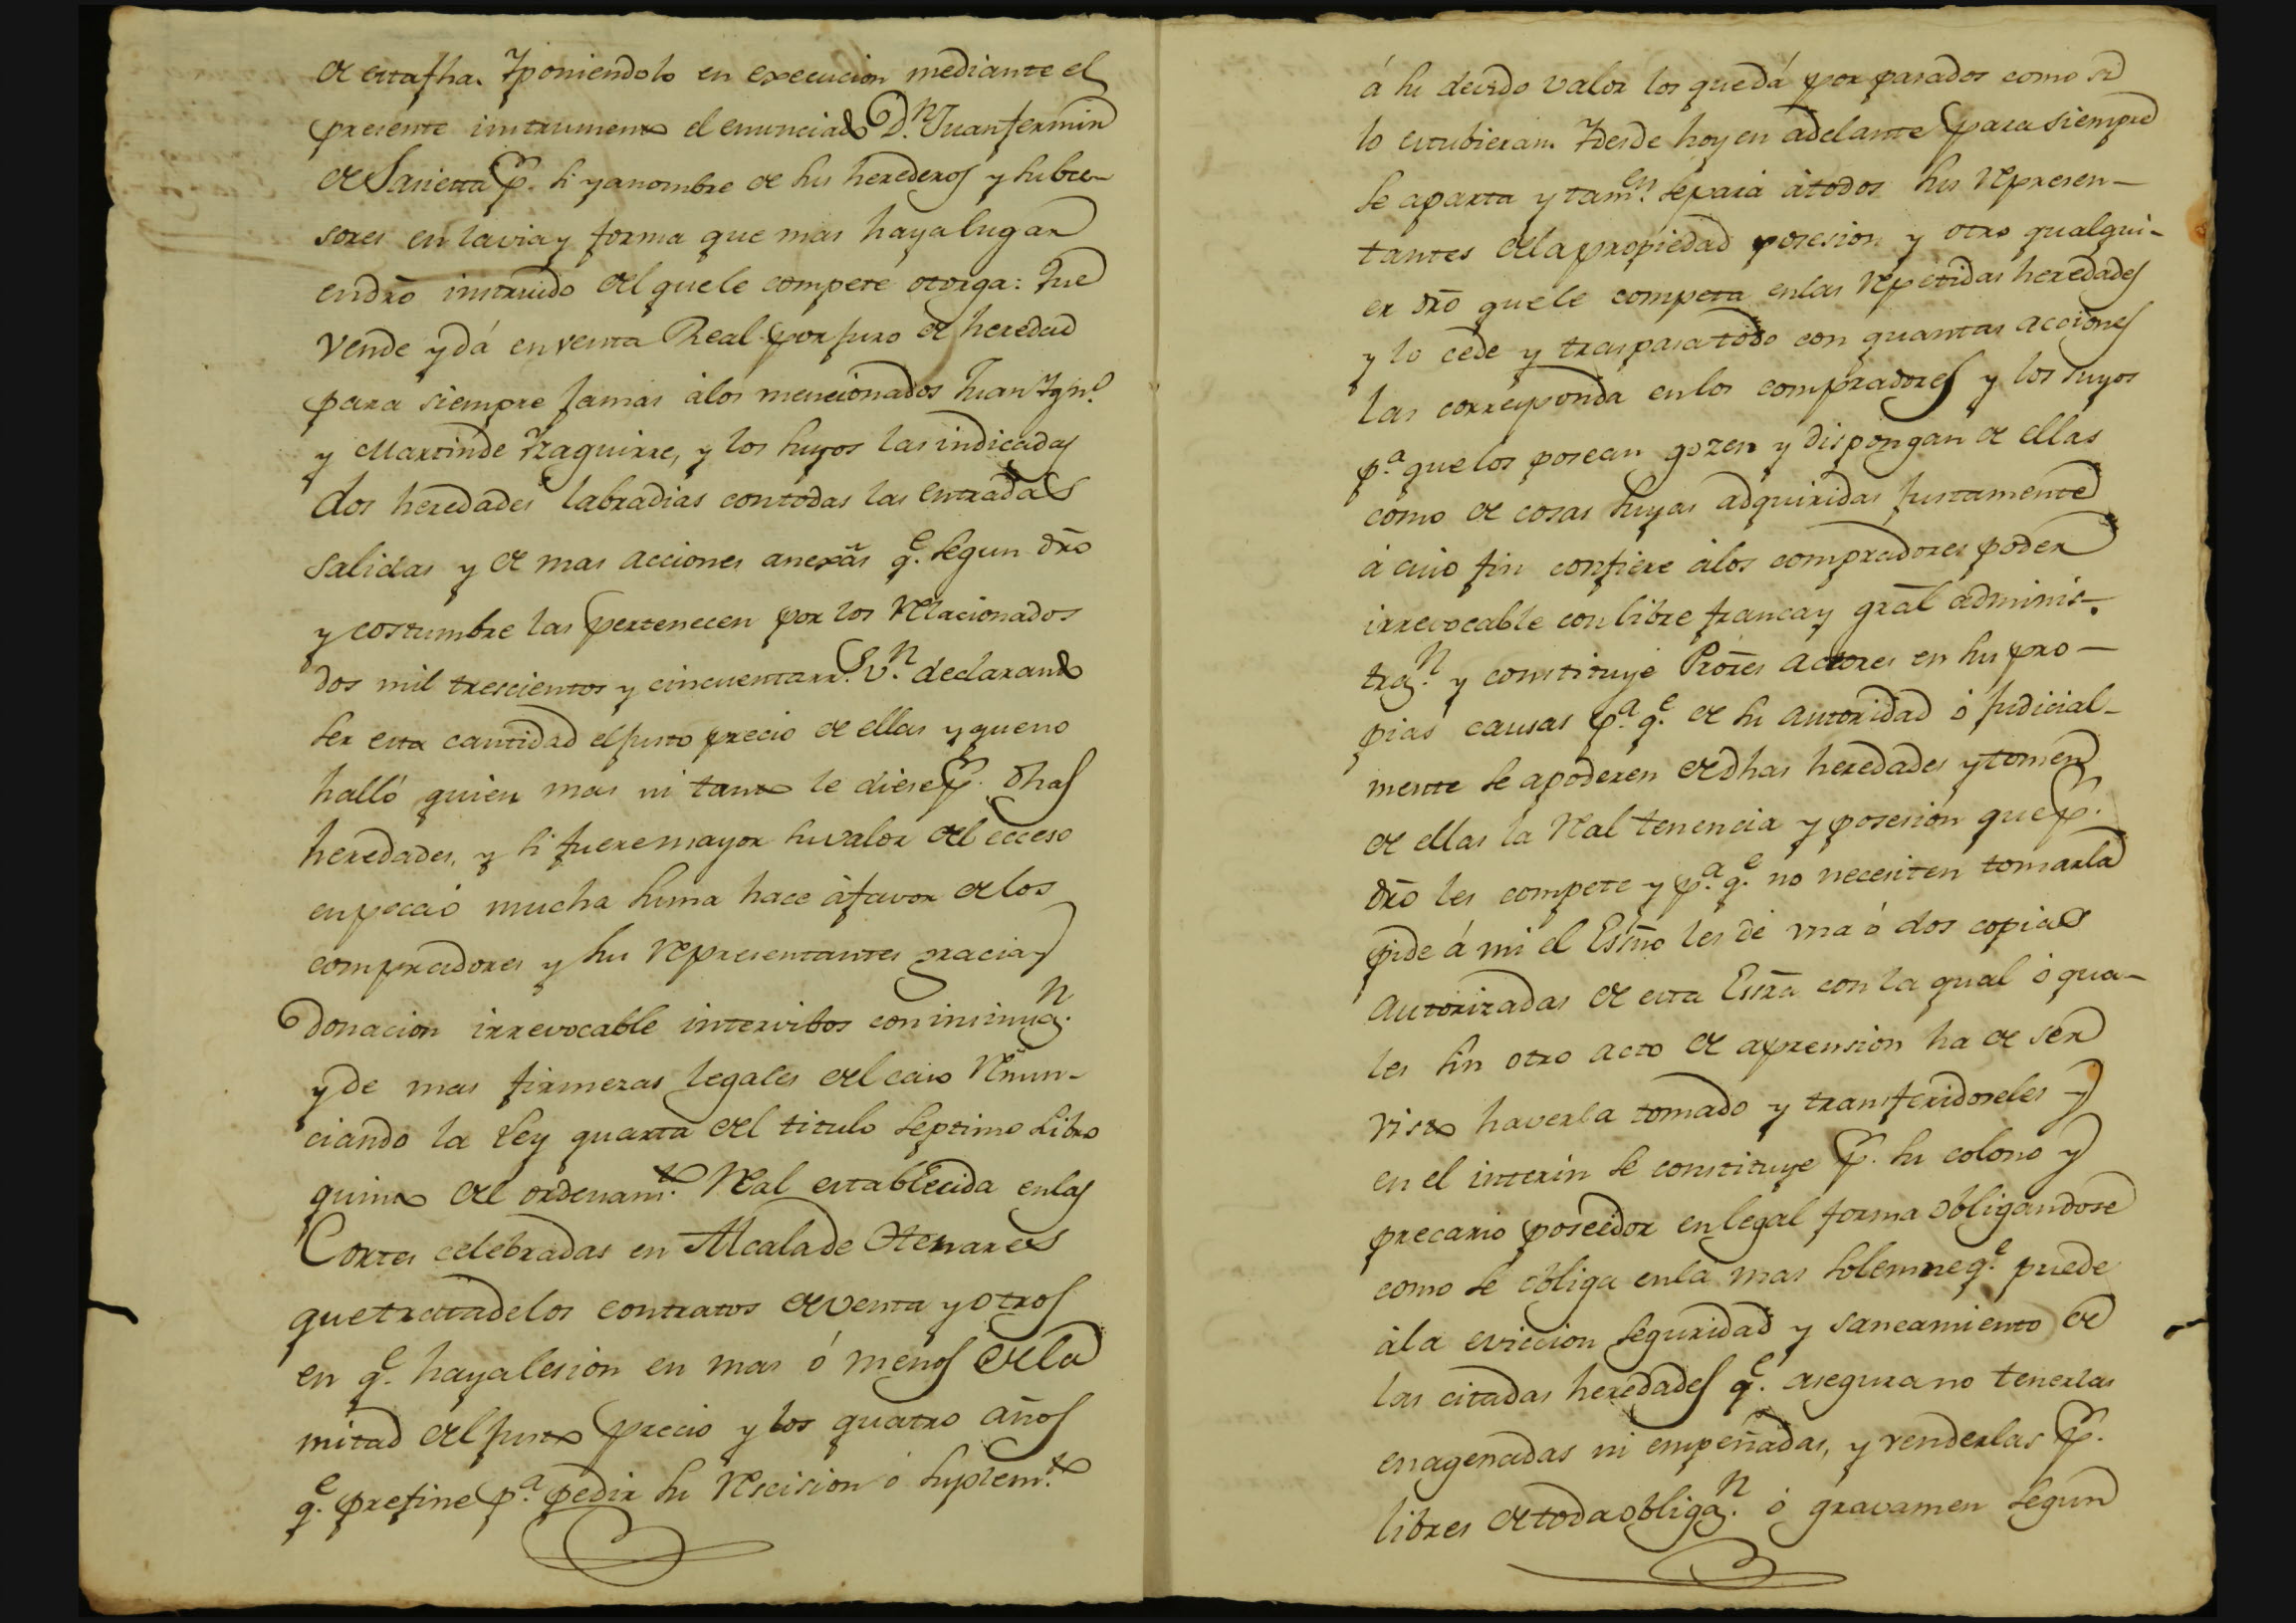 de esta fha. Y poniendolo en execucion mediante el
presente instrumento el enunciado Dn. Juan fermin
de Sarietta p. si y a nombre de sus herederos y subce-
sores en la via y forma que mas haya lugar
en dro instruido del que le compete otorga: Que
vende y dá en venta Real por juro de heredad
para siempre jamas à los mencionados Juan Ygno.
y Martin de Yzaguirre, y los suyos las indicadas
dos heredades labradias con todas las entradas
salidas y de mas acciones anexãs qe. segun dro
y costumbre las pertenecen por los relacionados
dos mil trescientos y cincuenta rr.s vn. declarando
ser esta cantidad el justo precio de ellas y que no
halló quien mas ni tanto le diese p. dhas
heredades, y si fuere mayor su valor del ecceso
en poca ó mucha suma hace à favor de los
compradores y sus representantes gracia y
donacion irrevocable intervibos con insinuan.
y de mas firmezas legales del caso renun-
ciando la Ley quarta del titulo septimo Libro
quinto del ordenamto. Real establecida en las
Cortes celebradas en Alcala de Henares
que trata de los contratos de venta y otros
en qe. haya lesion en mas ó menos de la
mitad del justo precio y los quatro años
qe. prefine pa. pedir su rescision ó suplemto.
á su devido valor los que dá por pasados como si
lo estubieran. Y desde hoy en adelante para siempre
se aparta y tamen. separa à todos sus represen-
tantes de la propiedad posesion y otro qualqui-
er dro que le competa en las repetidas heredades
y lo cede y traspasa todo con quantas acciones
las corresponda en los compradores y los suyos
pa. que los posean gozen y dispongan de ellas
como de cosas suyas adquiridas justamente
à cuio fin confiere à los compradores poder
irrevocable con libre franca y gral adminis-
tran. y constituye Prores actores en su pro-
pias causas pa. qe. de su autoridad ó judicial-
mente se apoderen de dhas heredades y tomen
de ellas la real tenencia y posesion que p.
dro les compete y pa. qe. no necesiten tomarla
pide á mi el Essno les dé una ó dos copias
autorizadas de esta Essra con la qual ó qua-
les sin otro acto de aprension ha de ser
visto haverla tomado y transferidoseles y
en el interin se constituye p. su colono y
precario poseedor en legal forma obligandose
como se obliga en la mas solemne qe. puede
à la eviccion seguridad y saneamiento de
las citadas heredades qe. asegura no tenerlas
enagenadas ni empeñadas, y venderlas p.
libres de toda obligan. ó gravamen segun